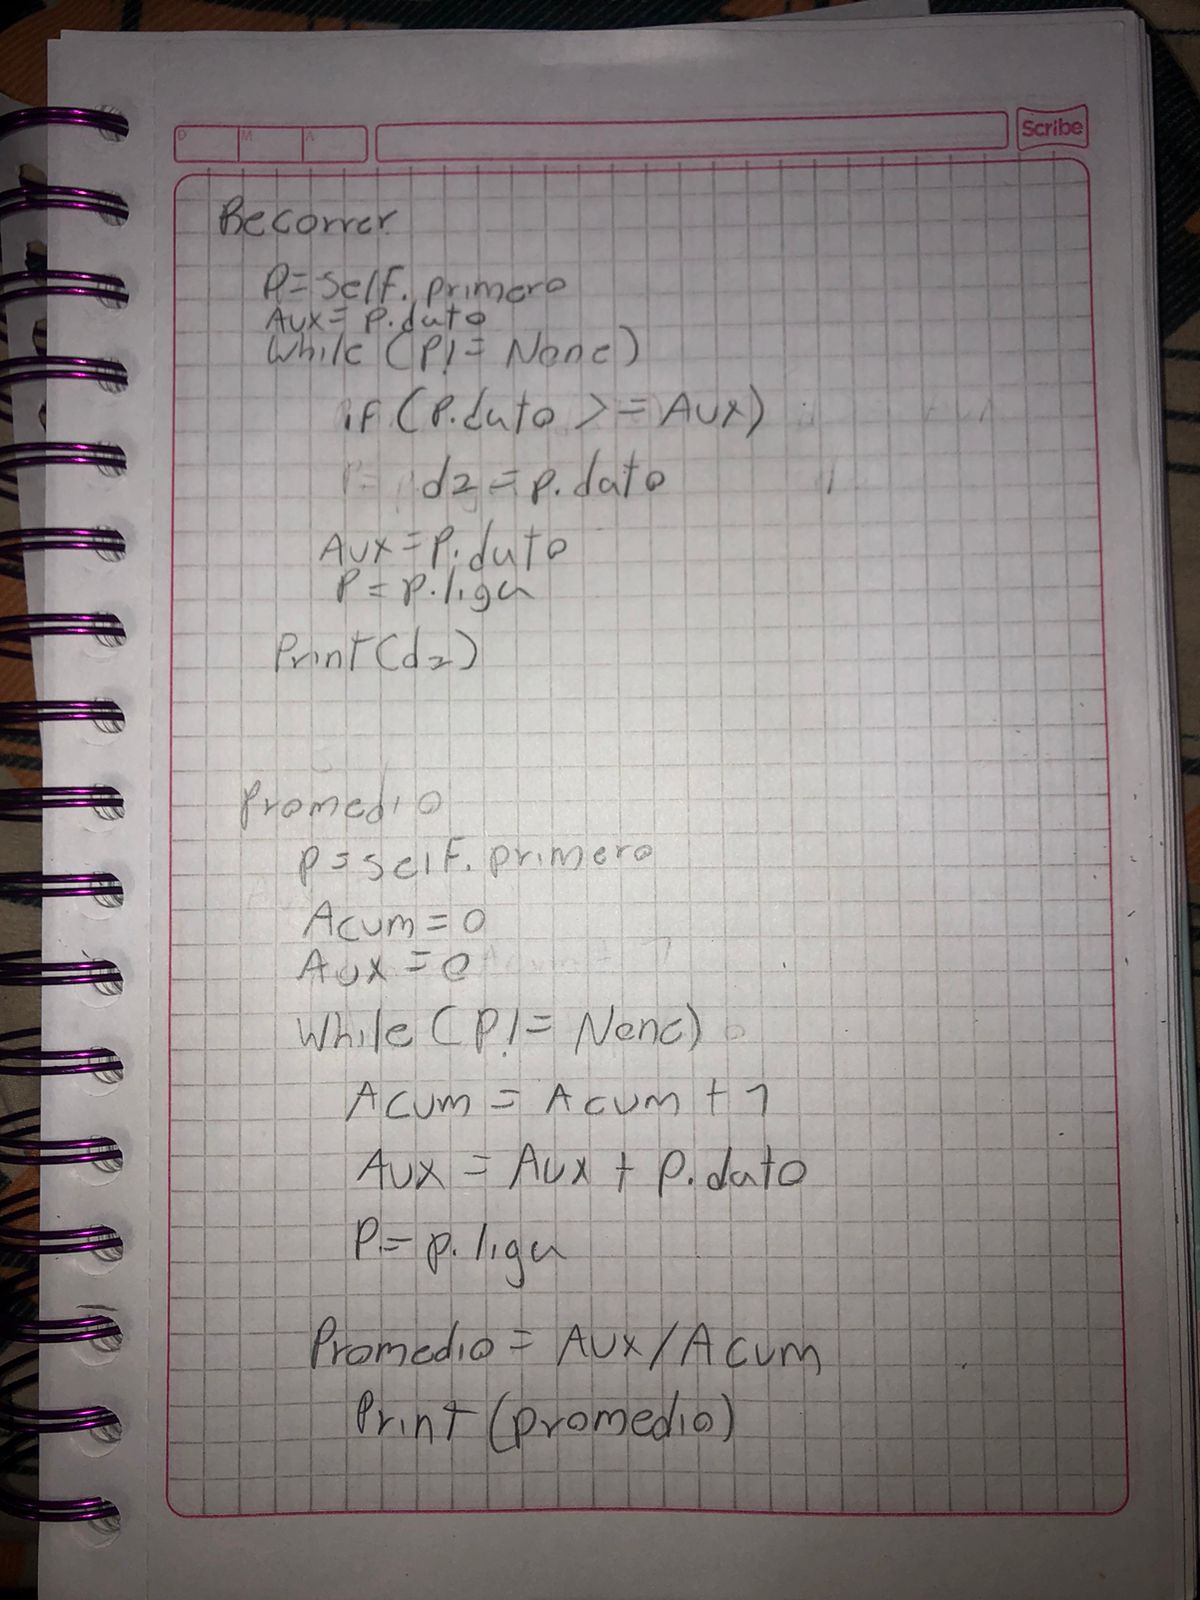 D M A
Scribe
Recorrer
P=self.primero
Aux= p.dato
While (P!= None)
if (P.dato >= Aux)
d2 = p.dato
Aux=P.dato
P = p.liga
Print(d2)
Promedio
P=self.primero
Acum=0
Aux=0
While (P!= None)
Acum = Acum + 1
Aux = Aux + p.dato
P= p.liga
Promedio = Aux/Acum
Print (promedio)